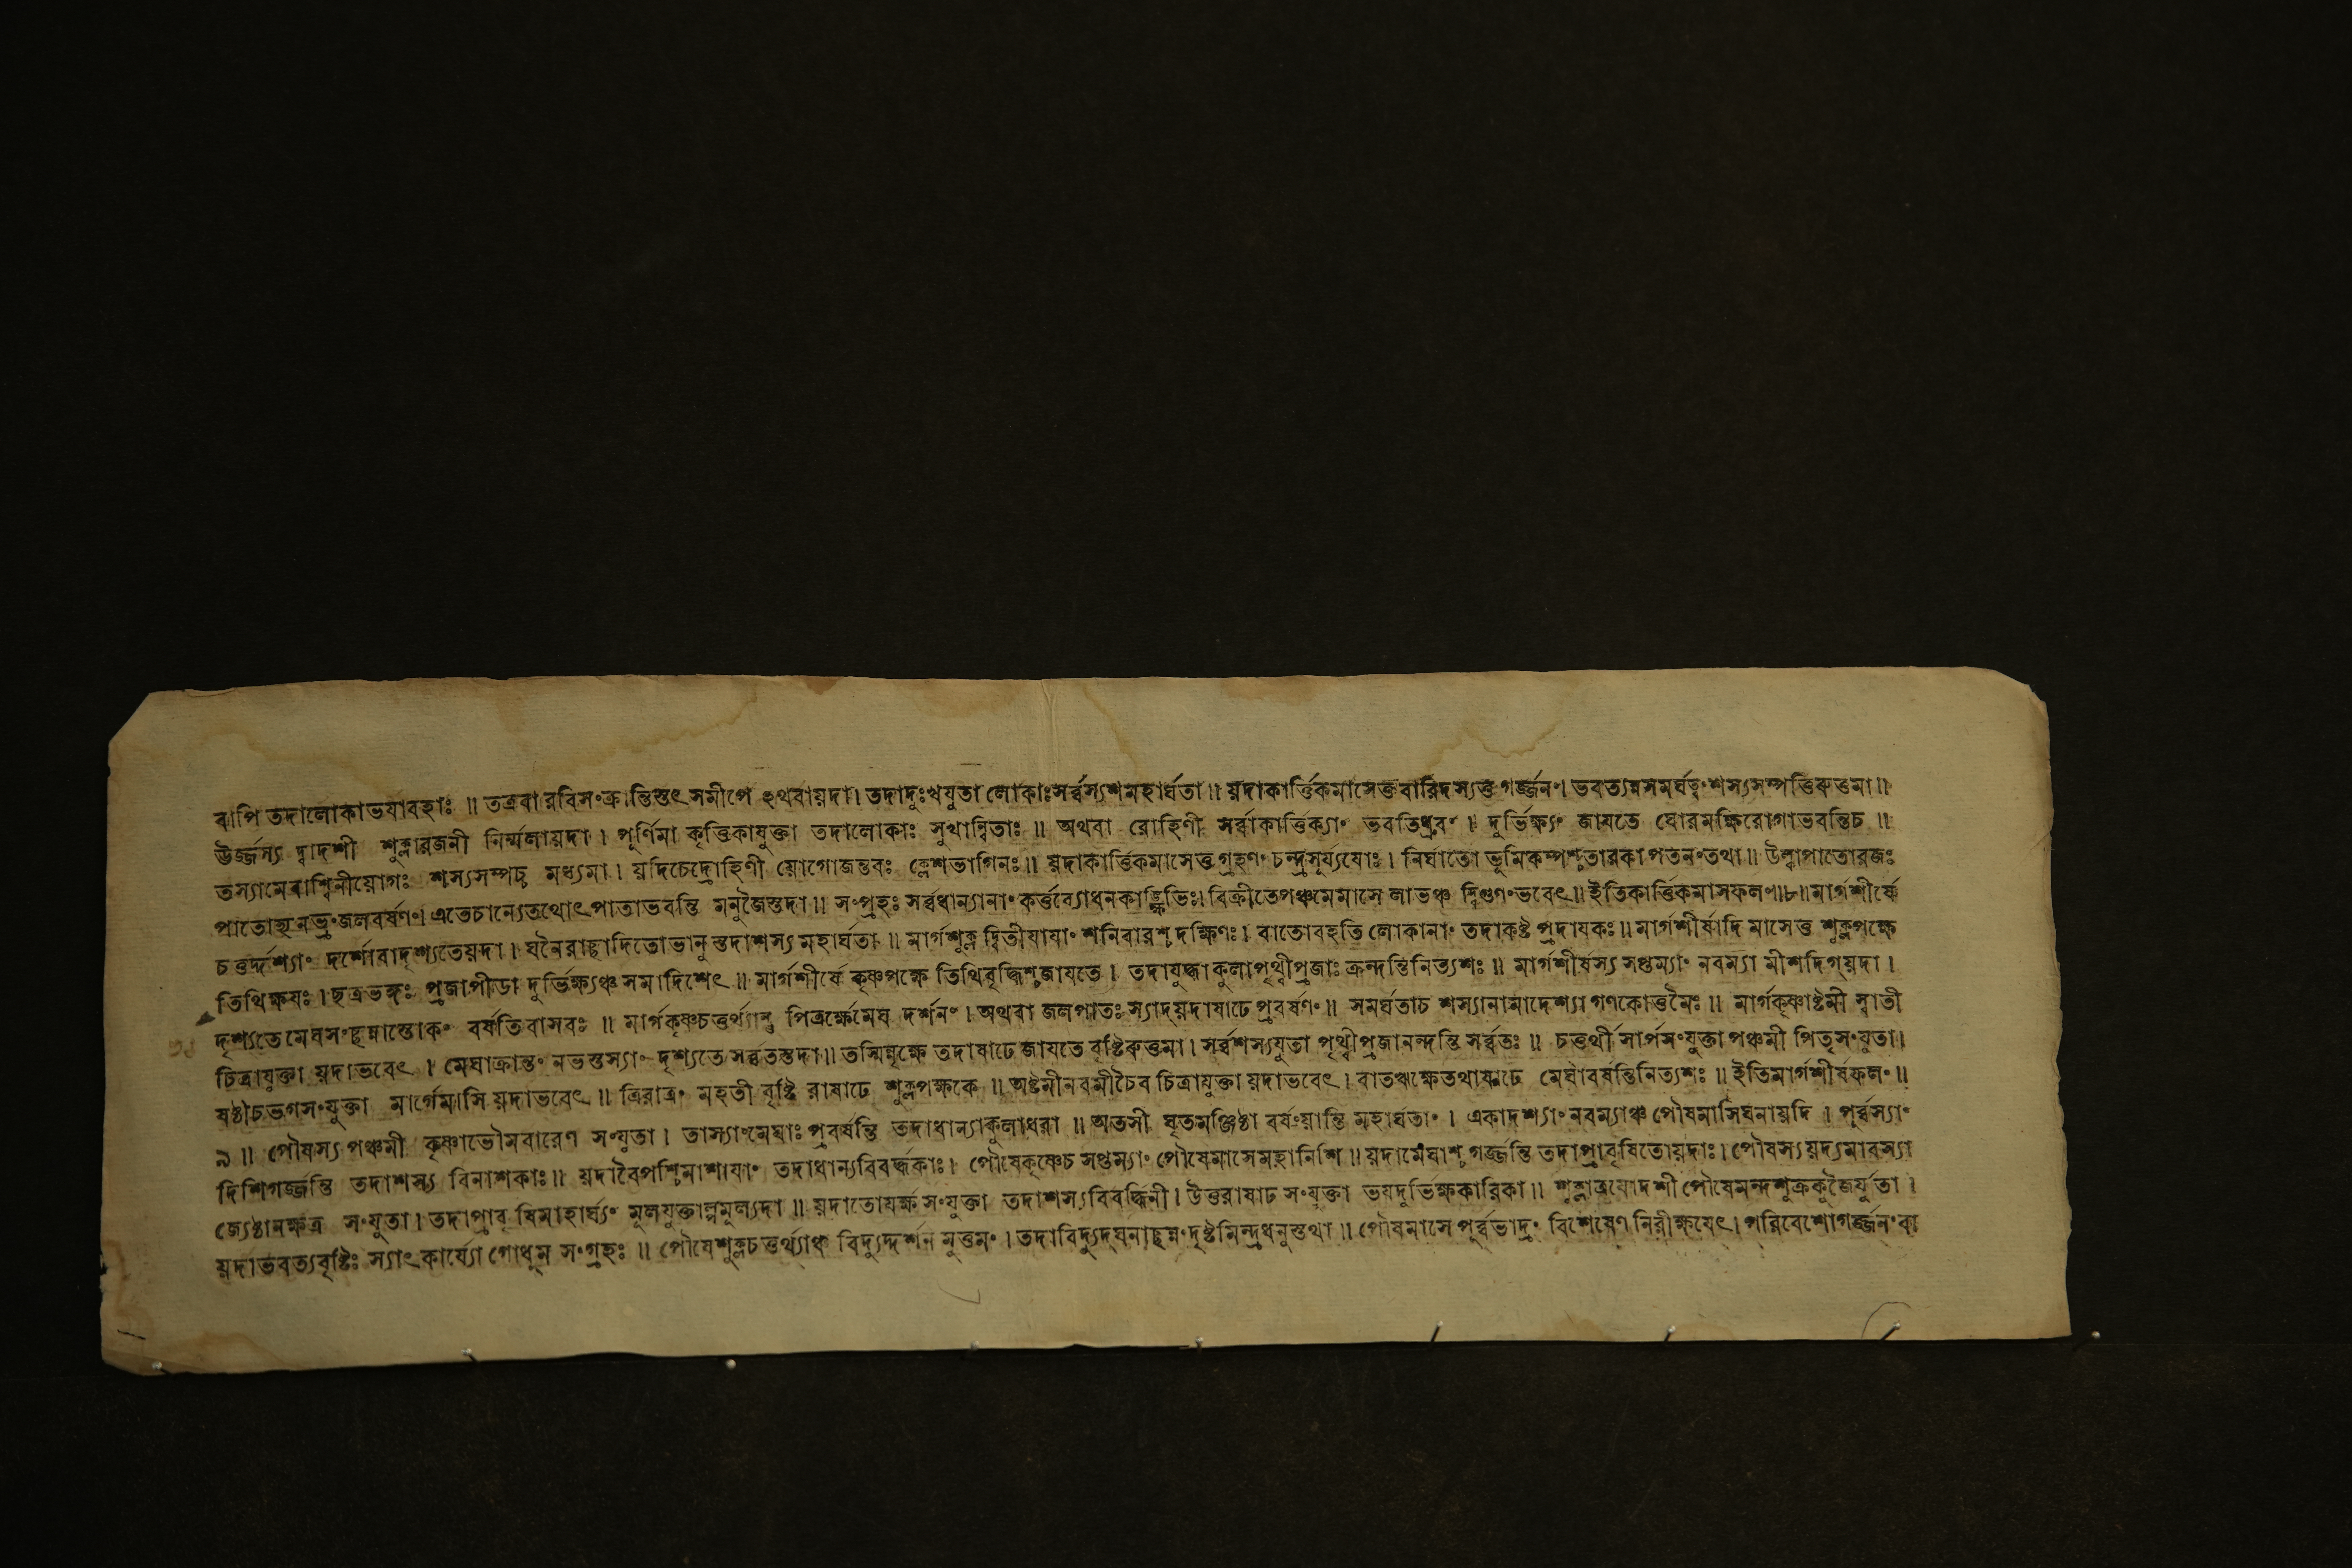 বাপি তদালোকাভযাবহাঃ ॥ তত্রবা রবিসংক্রান্তিস্তৎ সমীপে ঽথবায়দা। তদাদুঃখযুতা লোকাঃসর্ব্বস্যশমহার্ঘতা ॥ য়দাকার্ত্তিকমাসেত্তবারিদস্যত্ত গর্জ্জনং। ভবত্যন্নসমর্ঘত্বং শস্যসম্পত্তিরুত্তমা ॥
উর্জ্জস্য দ্বাদশী শুক্লারজনী নির্ম্মলায়দা । পূর্ণিমা কৃত্তিকাযুক্তা তদালোকাঃ সুখান্বিতাঃ ॥ অথবা রোহিণী সর্ব্বাকাত্তিক্যাং ভবতিধ্রুবং । দুর্ভিক্ষ্যং জাযতে ঘোরমক্ষিরোগাভবন্তিচ ॥
তস্যামেবাশ্বিনীয়োগঃ শস্যসম্পচ্চ মধ্যমা । য়দিচেদ্রোহিণী য়োগোজন্তবঃ ক্লেশভাগিনঃ ॥ য়দাকার্ত্তিকমাসেত্ত গ্রহণং চন্দ্রসূর্য্যযোঃ । নির্ঘাতো ভূমিকম্পশ্চতারকা পতনংতথা ॥ উল্কাপাতোরজঃ
পাতোহ্যনভ্রংজলবর্ষণং। এতেচান্যেতথোৎপাতাভবন্তি মনুজৈস্তদা ॥ সংগ্রহঃ সর্ব্বধান্যানাং কর্ত্তব্যোধনকাঙ্ক্ষিভিঃ। বিক্রীতেপঞ্চমেমাসে লাভঞ্চ দ্বিগুণংভবেৎ ॥ ইতিকার্ত্তিকমাসফলং ॥৮॥ মার্গশীর্ষে
চত্তর্দ্দশ্যাং দর্শোবাদৃশ্যতেয়দা । ঘনৈরাছাদিতোভানু স্তদাশস্য মহার্ঘতা ॥ মার্গশুক্ল দ্বিতীযাযাং শনিবারশ্চ দক্ষিণঃ । বাতোবহতি লোকানাং তদাকষ্ট প্রদাযকঃ ॥ মার্গশীর্ষাদি মাসেত্ত শুক্লপক্ষে
তিথিক্ষযঃ । ছত্রভঙ্গঃ প্রজাপীডা দুর্ভিক্ষ্যঞ্চ সমাদিশেৎ ॥ মার্গশীর্ষে কৃষ্ণপক্ষে তিথিবৃদ্ধিশ্চজাযতে । তদাযুদ্ধাকুলাপৃথ্বীপ্রজাঃ ক্রন্দন্তিনিত্যশঃ ॥ মার্গশীর্ষস্য সপ্তম্যাং নবম্যা মীশদিগ্য়দা ।
দৃশ্যতে মেঘসংছন্নাস্তোকং বর্ষতিবাসবঃ ॥ মার্গকৃষ্ণচত্তর্থ্যান্তু পিত্রর্ক্ষেমেঘ দর্শনং । অথবা জলপাতঃ স্যাদ্য়দাষাঢে প্রবর্ষণং ॥ সমর্ঘতাচ শস্যানামাদেশ্যা গণকোত্তমৈঃ ॥ মার্গকৃষ্ণাষ্টমী স্বাতী
চিত্রাযুক্তা য়দাভবেৎ । মেঘাক্রান্তং নভস্তস্যাং দৃশ্যতে সর্ব্বতস্তদা ॥ তস্মিন্নৃক্ষে তদাষাঢে জাযতে বৃষ্টিরুত্তমা । সর্ব্বশস্যযুতা পৃথ্বীপ্রজানন্দন্তি সর্ব্বতঃ ॥ চত্তর্থী সার্পসংযুক্তা পঞ্চমী পিতৃসংযুতা।
ষষ্ঠীচভগসংযুক্তা মার্গেমাসি য়দাভবেৎ ॥ ত্রিরাত্রং মহতী বৃষ্টি রাষাঢে শুক্লপক্ষকে ॥ অষ্টমীনবমীচৈব চিত্রাযুক্তা য়দাভবেৎ । বাতঋক্ষেতথাষাঢে মেঘাবর্ষন্তিনিত্যশঃ ॥ ইতিমার্গশীর্ষফলং ॥
৯ ॥ পৌষস্য পঞ্চমী কৃষ্ণাভৌমবারেণ সংযুতা । তাস্যাংমেঘাঃ প্রবর্ষন্তি তদাধান্যাকুলাধরা ॥ অতসী ঘৃতমঞ্জিষ্ঠা বর্ষেয়ান্তি মহার্ঘতাং । একাদশ্যাং নবম্যাঞ্চ পৌষমাসিঘনায়দি । পূর্ব্বস্যাং
দিশিগর্জ্জন্তি তদাশস্য বিনাশকাঃ ॥ য়দাবৈপশ্চিমাশাযাং তদাধান্যবিবর্দ্ধকাঃ । পৌষেকৃষ্ণেচ সপ্তম্যাং পৌষেমাসেমহানিশি ॥ য়দামেঘাশ্চ গর্জ্জন্তি তদাপ্রাবৃষিতোয়দাঃ । পৌষস্য য়দ্যমাবস্যা
জ্যেষ্ঠানক্ষত্র সংযুতা । তদাপ্রাবৃষিমাহার্ঘ্যং মূলযুক্তাল্পমূল্যদা ॥ য়দাতোযর্ক্ষ সংযুক্তা তদাশস্যবিবর্দ্ধিনী । উত্তরাষাঢ সংযুক্তা ভয়দুর্ভিক্ষকারিকা ॥ শুক্লাত্রযোদশী পৌষেমন্দশুক্রকুজৈর্যুতা ।
য়দাভবত্যবৃষ্টিঃ স্যাৎ কার্য্যো গোধূম সংগ্রহঃ ॥ পৌষেশুক্লচত্তর্থ্যাঞ্চ বিদ্যুদ্দর্শন মুত্তমং । তদাবিদ্যুদ্ঘনাছন্নং দৃষ্টমিন্দ্রধনুস্তথা ॥ পৌষমাসে পূর্ব্বভাদ্রং বিশেষেণ নিরীক্ষযেৎ । পরিবেশোগর্জ্জনং বা